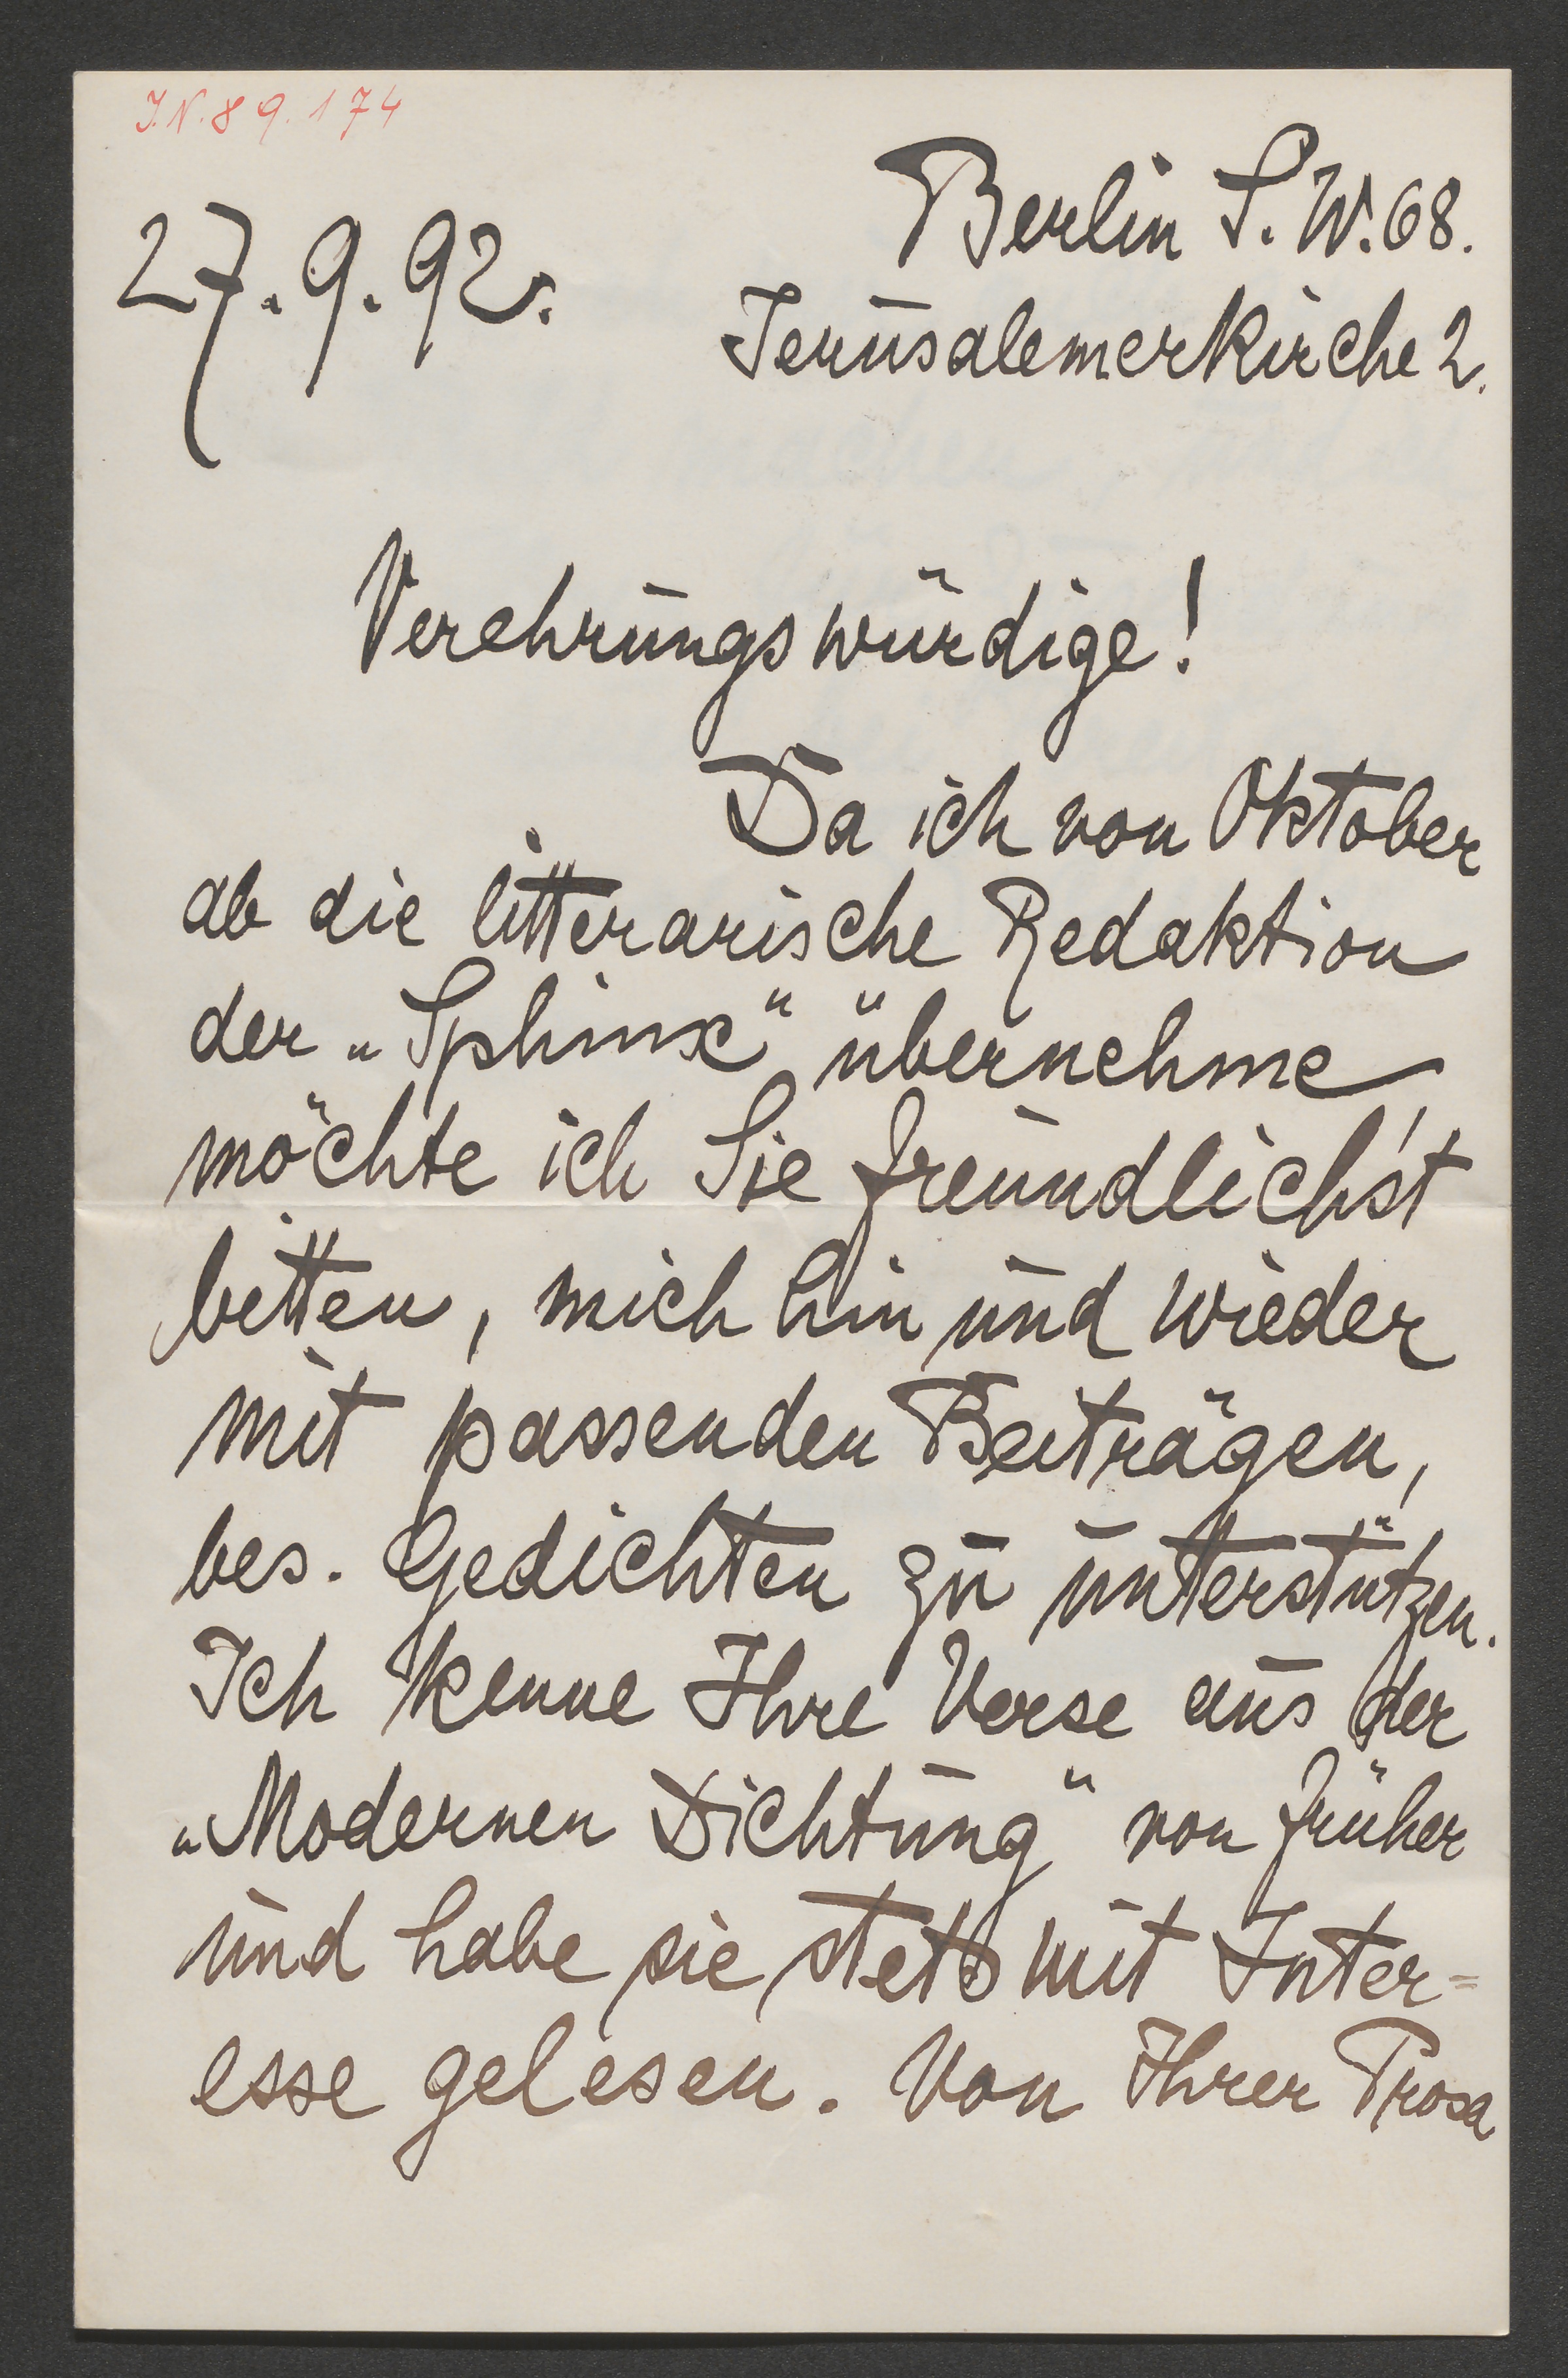 J.N. 89.174
Berlin S. W. 68.
27. 9. 92.
Jerusalemerkirche 2.
Verehrungswürdige!
Da ich von Oktober
ab die litterarische Redaktion
der „Sphinx“ übernehme,
möchte ich Sie freundlichst
bitten, mich hin und wieder
mit passenden Beiträgen,
bes. Gedichten zu unterstützen.
Ich kenne Ihre Verse aus der
„Modernen Dichtung“ von früher
und habe sie stets mit Inter=
esse gelesen. Von Ihrer Prosa